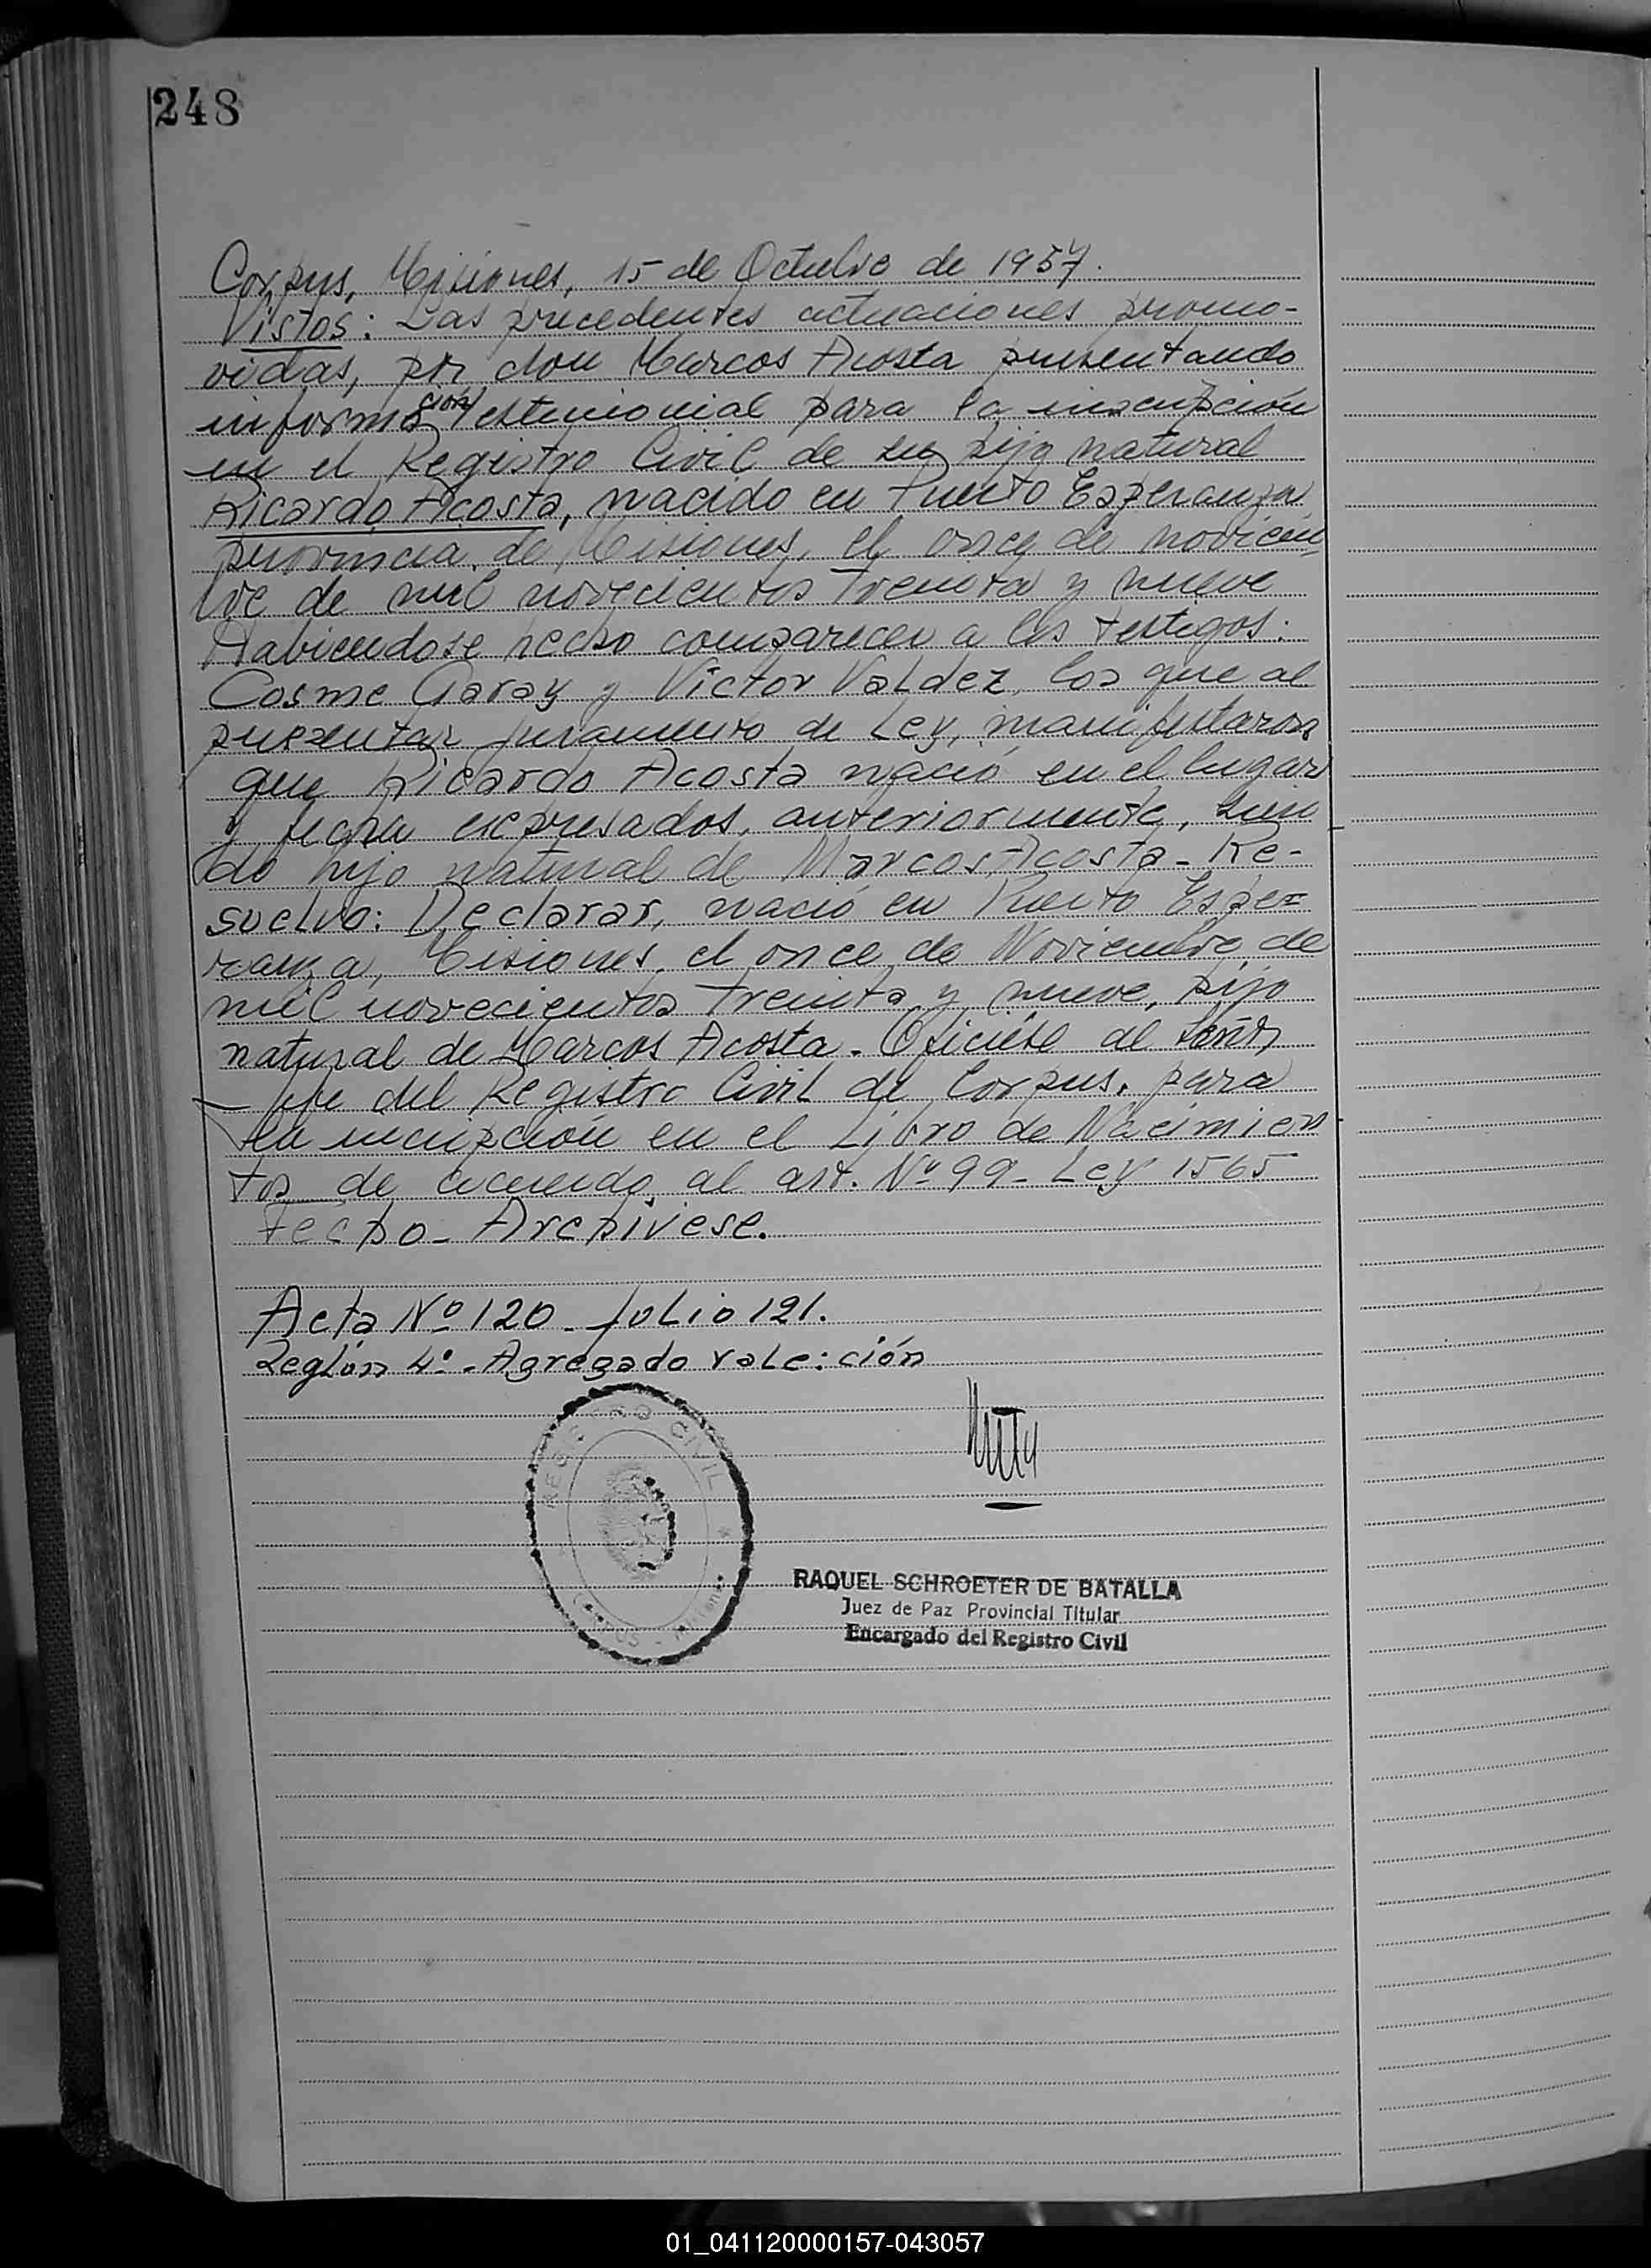 248
Corpus, Misiones, 15 de Octubre de 1957.
Vistos: Las precedentes actuaciones promo-
vidas, por don Marcos Acosta presentando
información testimonial para la inscripción
en el Registro Civil de su hijo natural
Ricardo Acosta, nacido en Puerto Esperanza
provincia de Misiones, el once de noviem
bre de mil novecientos treinta y nueve
Habiendose hecho comparecer a los testigos:
Cosme Garay y Victor Valdez, los que al
presentar juramento de Ley, manifestaron
que Ricardo Acosta nació en el lugar
y fecha expresados, anteriormente, sien
do hijo natural de Marcos Acosta - Re-
suelvo: Declarar, nació en Puerto Espe=
ranza, Misiones, el once de Noviembre de
mil novecientos treinta y nueve, hijo
natural de Marcos Acosta. Oficiése al Señor
Jefe del Registro Civil de Corpus, para
la incripción en el Libro de Nacimien
tos de acuerdo al art. Nº 99 - Ley 1565
Fecho - Archivese.
Acta Nº 120 - folio 121.
Reglón 4º - Agregado vale: ción
REGISTRO CIVIL
CORPUS - Misiones
RAQUEL SCHROETER DE BATALLA
Juez de Paz Provincial Titular
Encargado del Registro Civil
01_041120000157-043057